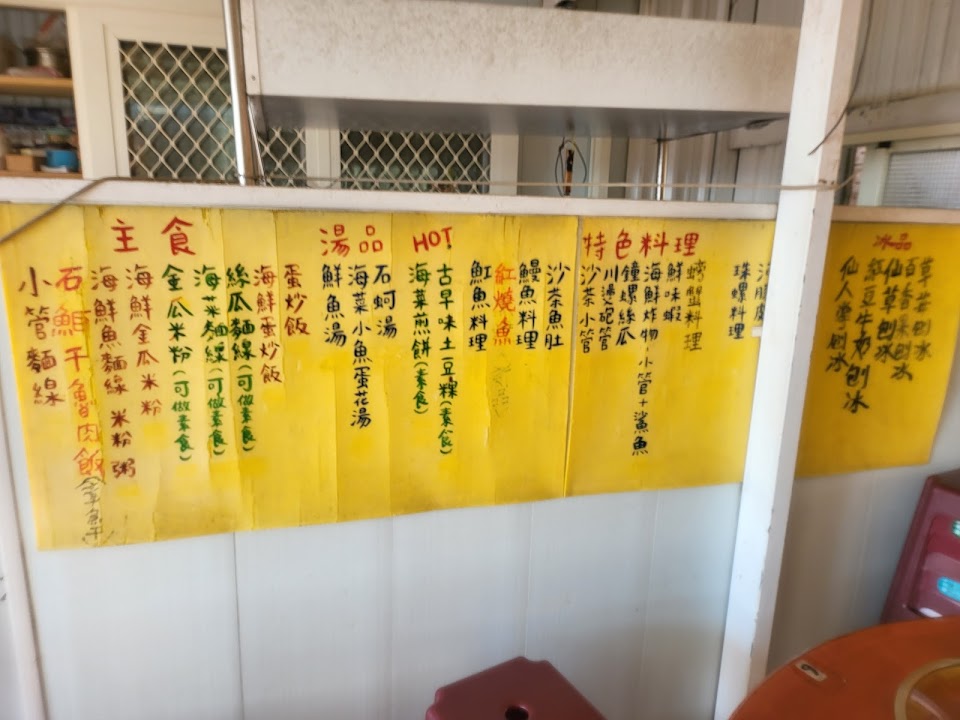 主食
蛋炒飯
海鮮蛋炒飯
絲瓜麵線(可做素食)
海菜麵線(可做素食)
金瓜米粉(可做素食)
海鮮金瓜米粉
海鮮魚麵線 米粉 粥
石鮔干魯肉飯(章魚干)
小管麵線
湯品
石蚵湯
海菜小魚蛋花湯
鮮魚湯
HOT
沙茶魚肚
鰻魚料理
紅燒魚
魟魚料理
古早味土豆粿(素食)
海菜煎餅(素食)
特色料理
珠螺料理
螃蟹料理
鮮味蝦
海鮮炸物-小管+鯊魚
鐘螺絲瓜
川燙管
沙茶小管
冰品
刨冰
百香果刨冰
仙草刨冰
紅豆牛奶刨冰
仙人掌刨冰